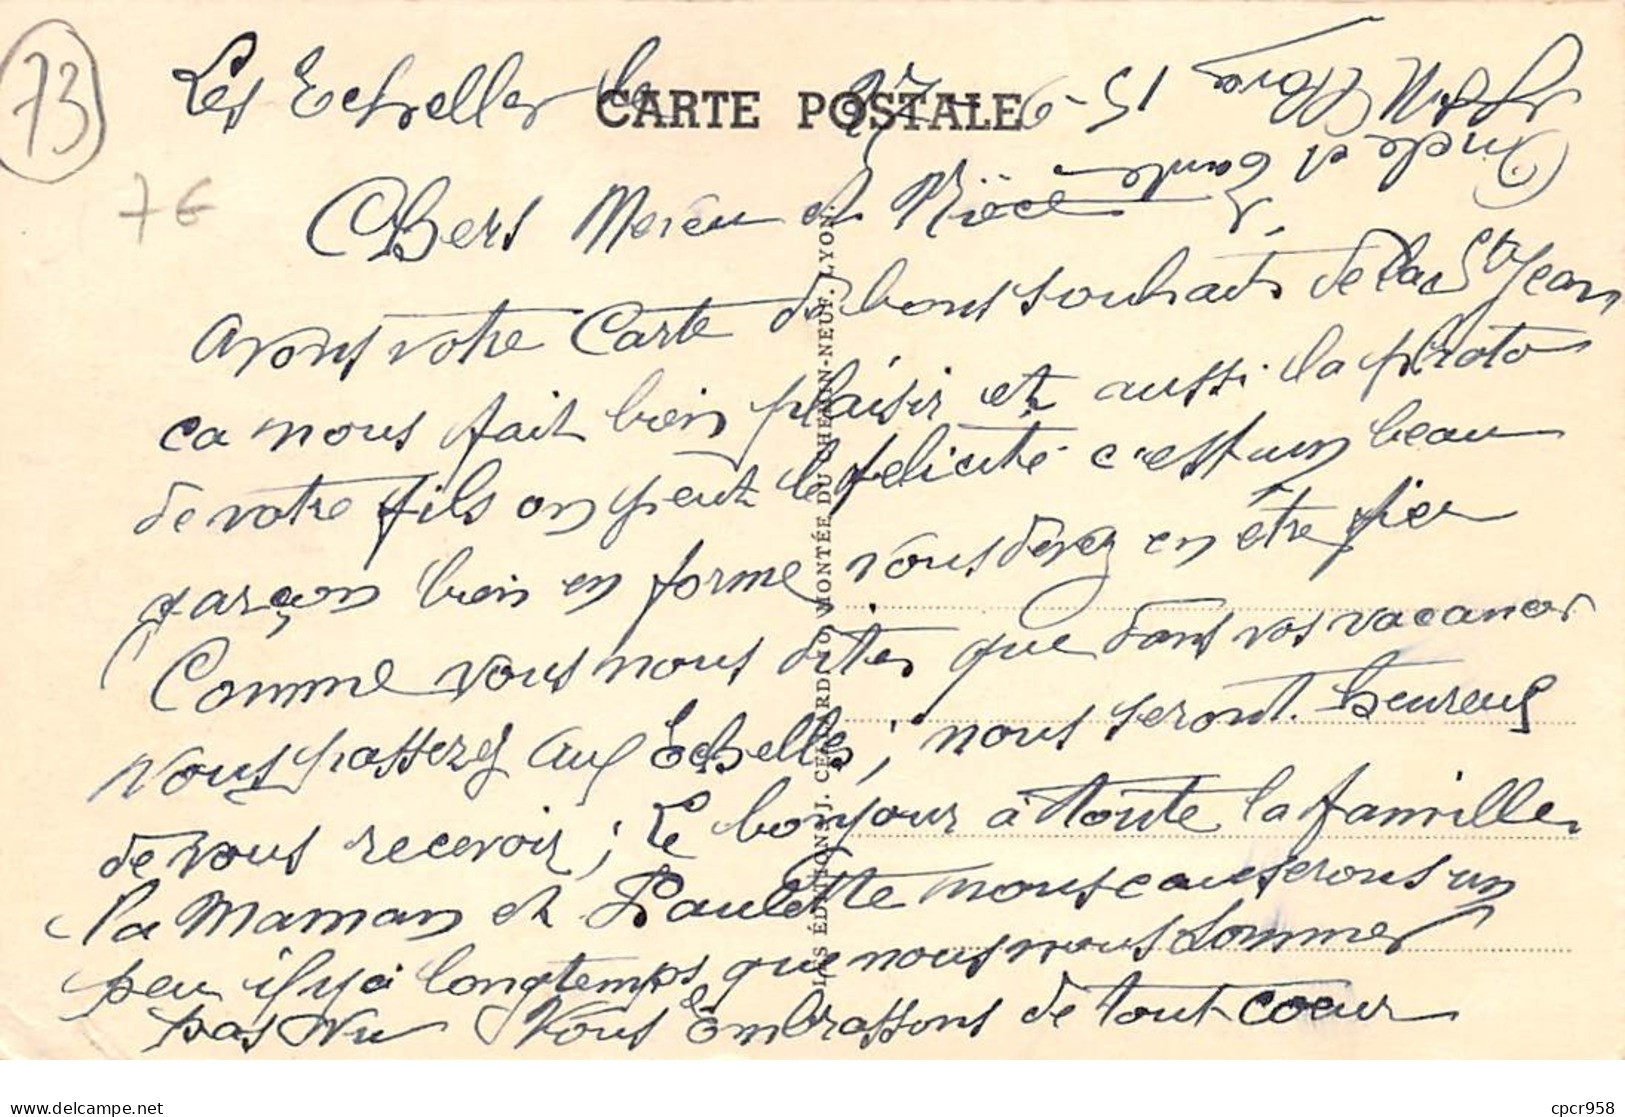 73
7€
Les Echelles le 27-6-51
CARTE POSTALE
Chers Neveu et Nièce
Oncle et Tante
avons votre Carte de bons souhaits de la St Jean
ca nous fait bien plaisir et aussi la photo
de votre fils on peut le félicité c'est un beau
garçon bien en forme vous devez en être fier
Comme vous nous dites que dans vos vacances
vous passerez aux Echelles; nous seront heureux
de vous recevoir; Le bonjour à toute la famille
la maman et Paulette nous causerons un
peu il y a longtemps que nous nous sommes
pas vu Vous Embrassons de tout coeur
LES ÉDITIONS J. CELLARD MONTÉE DU CHEMIN-NEUF. LYON.
cpcr958